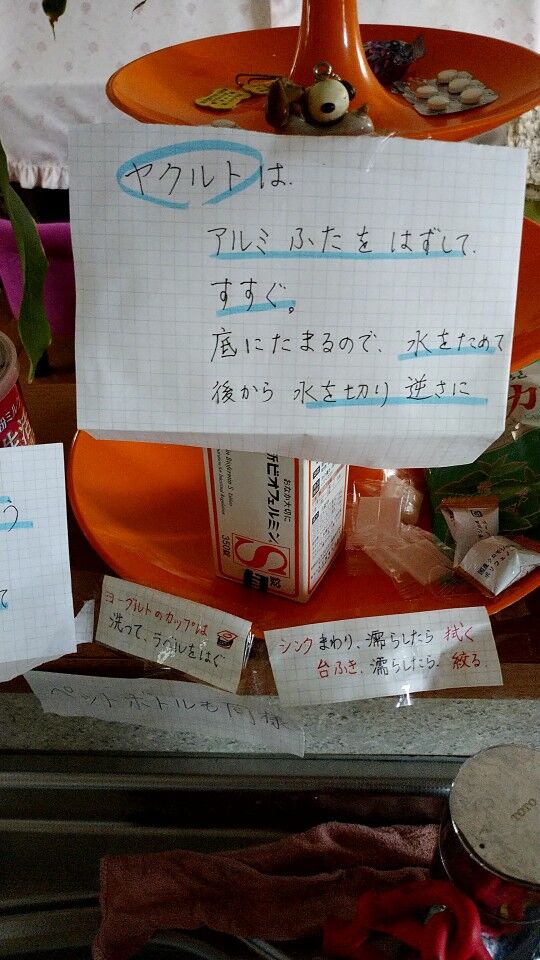 ヤクルトは、
アルミふたをはずして、
すすぐ。
底にたまるので、水をためて
後から 水を切り 逆さに
おなか大切に
新ビオフェルミン
S
錠
350錠
ヨーグルトのカップは
洗って、ラベルをはぐ
シンクまわり、濡らしたら 拭く
台ふき、濡らしたら、絞る
ペットボトルも同様
TOTO